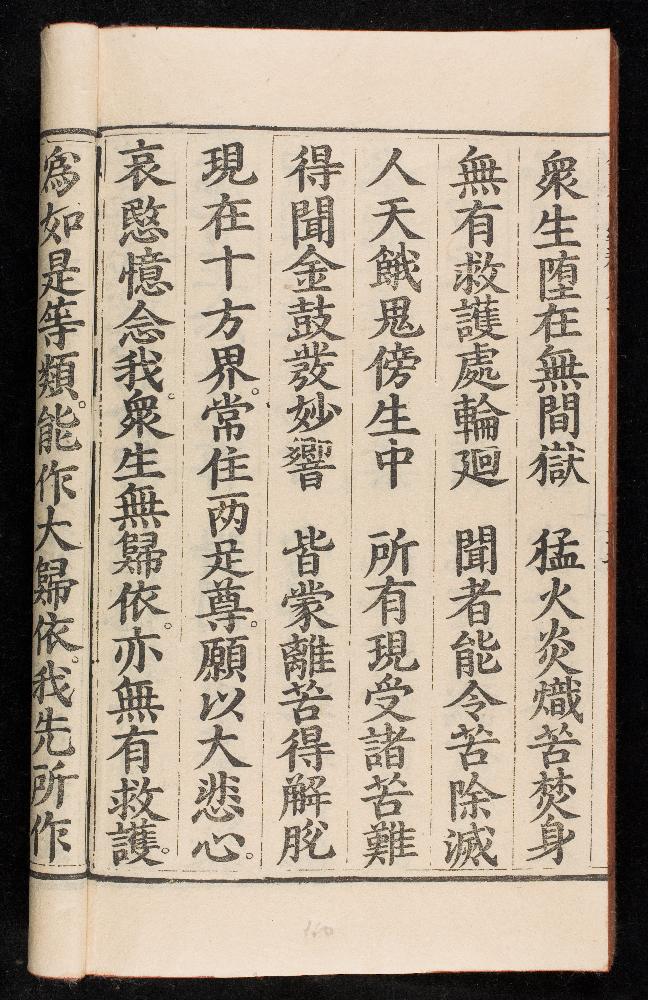 衆生堕在無間獄　猛火炎熾苦焚身
無有救護處輪廻　聞者能令苦除滅
人天餓鬼傍生中　所有現受諸苦難
得聞金鼓發妙響　皆蒙離苦得解脫
現在十方界。常住两足尊。願以大悲心。
哀愍憶念我。衆生無歸依。亦無有救護。
為如是等類。能作大歸依。我先所作